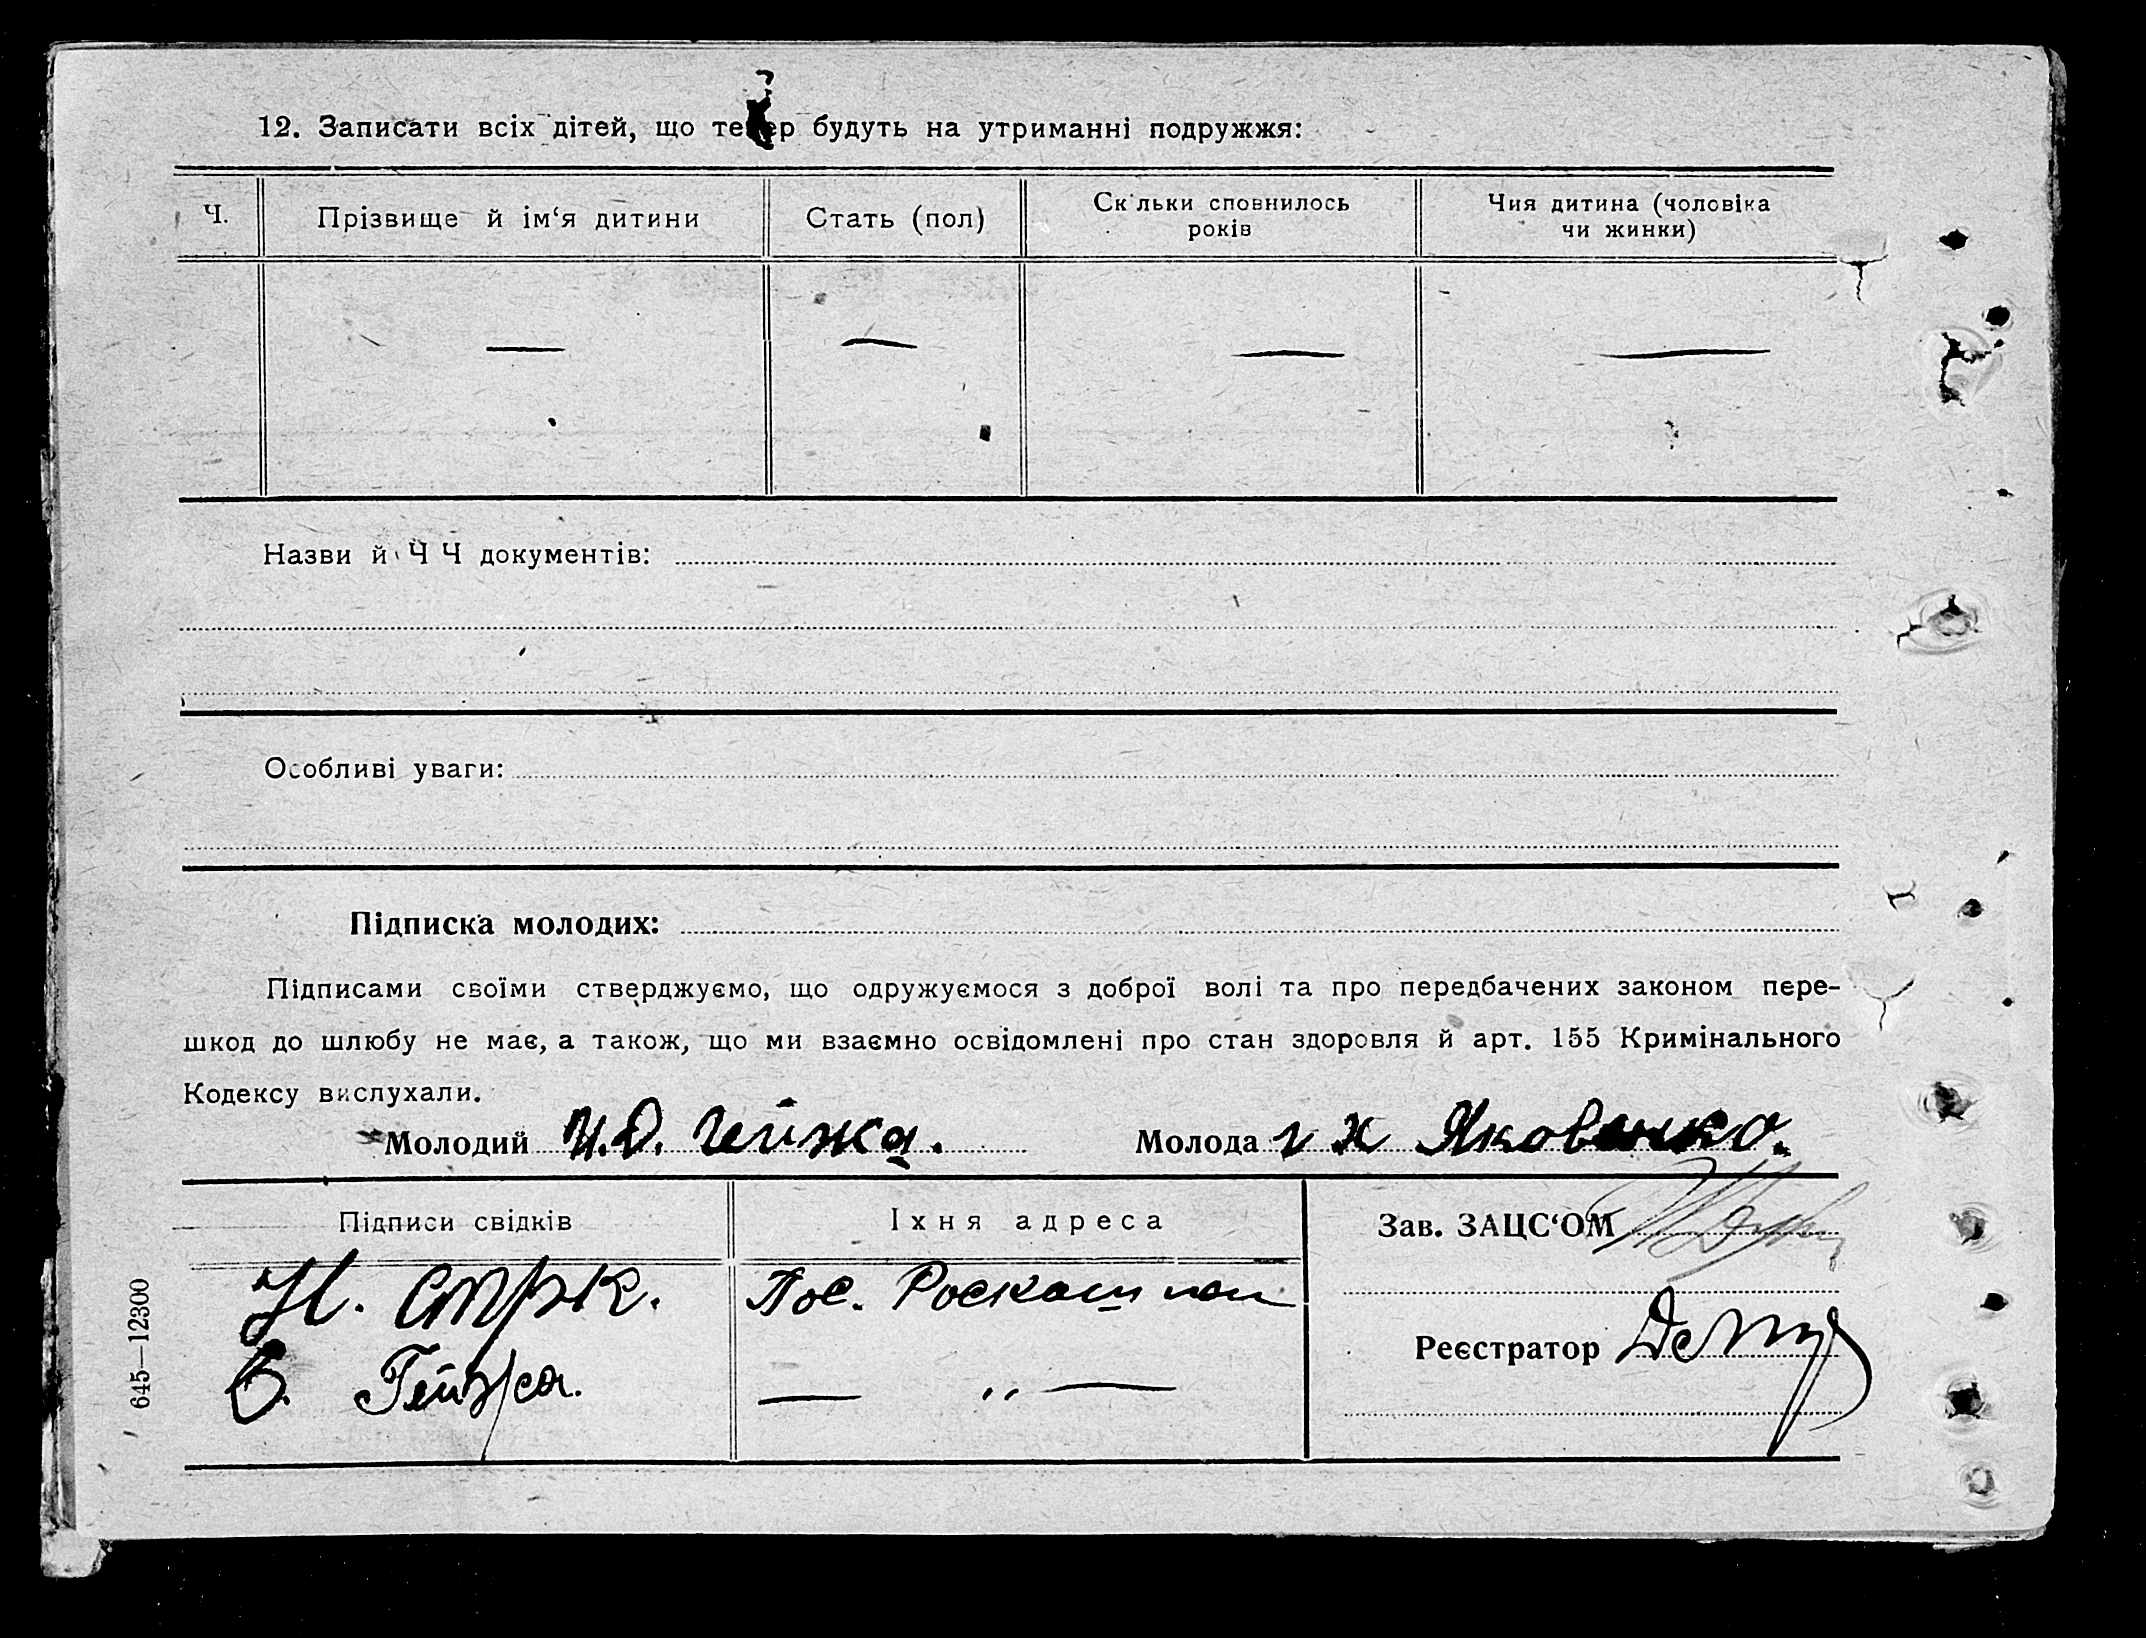 12. Записати всіх дітей, що тепер будуть на утриманні подружжя:
Ч.
Прізвище й ім‘я дитини
Стать (пол)
Скільки сповнилось
років
Чия дитина (чоловіка
чи жинки)
— — — —
Назви й Ч Ч документів:
Особливі уваги:
Підписка молодих:
Підписами своїми стверджуємо, що одружуємося з доброї волі та про передбачених законом пере-
шкод до шлюбу не має, а також, що ми взаємно освідомлені про стан здоровля й арт. 155 Кримінального
Кодексу вислухали.
Молодий И.Д. Гейжа. Молода г х Яковенко.
Підписи свідків
Їхня адреса
Зав. ЗАЦС‘ОМ
Н. Стрк. Пос.
Реєстратор
Гейжа. — „ —
645—12300